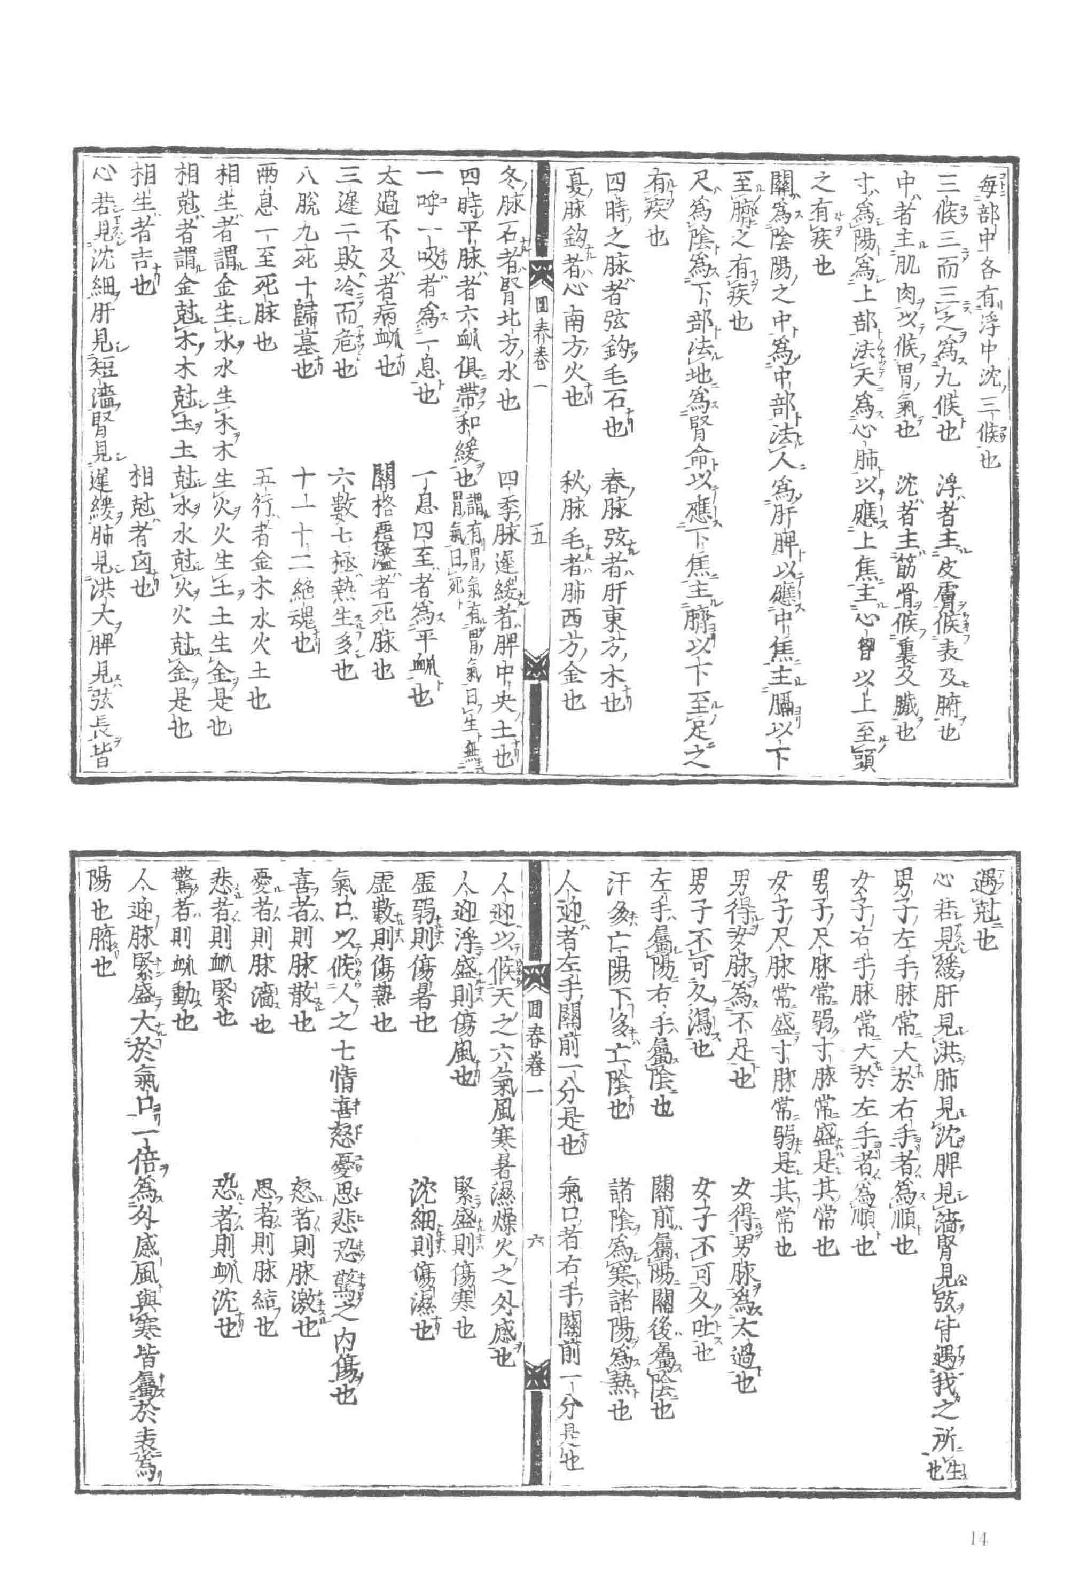 每部中各有浮中沈三候也
三候三而三之爲九候也　浮者主皮膚候表及腑也
中者主肌肉以候胃氣也　沈者主筋骨候裏及臟也
寸爲陽爲上部法天爲心肺以應上焦主心胷以上至頭
之有疾也
關爲陰陽之中爲中部法人爲肝脾以應中焦主膈以下
至臍之有疾也
尺爲陰爲下部法地爲腎命以應下焦主臍以下至足之
有疾也
四時之脉者弦鈎毛石也　春脉弦者肝東方木也
夏脉鈎者心南方火也　秋脉毛者肺西方金也
圓春卷一　五
冬脉石者腎北方水也　四季脉遲緩者脾中央土也
四時平脉者六䘑俱帶和緩也謂有胃氣有胃氣曰生無胃氣曰死
一呼一吸者爲一息也　一息四至者爲平䘑也
太過不及者病䘑也　關格覆溢者死脉也
三遲二敗冷而危也　六數七極熱生多也
八脫九死十歸墓也　十一十二絶魂也
兩息一至死脉也　五行者金木水火土也
相生者謂金生水水生木木生火火生土土生金是也
相尅者謂金尅木木尅土土尅水水尅火火尅金是也
相生者吉也　相尅者凶也
心若見沈細肝見短濇腎見遲緩肺見洪大脾見弦長皆
遇尅也
心若見緩肝見洪肺見沈脾見濇腎見弦皆遇我之所生也
男子左手脉常大於右手者爲順也
女子右手脉常大於左手者爲順也
男子尺脉常弱寸脉常盛是其常也
女子尺脉常盛寸脉常弱是其常也
男得女脉爲不足也　女得男脉爲太過也
男子不可久瀉也　女子不可久吐也
左手屬陽右手屬陰也　關前屬陽關後屬陰也
汗多亡陽下多亡陰也　諸陰爲寒諸陽爲熱也
人迎者左手關前一分是也　氣口者右手關前一分是也
回春卷一　六
人迎以候天之六氣風寒暑濕燥火之外感也
人迎浮盛則傷風也　緊盛則傷寒也
虛弱則傷暑也　沈細則傷濕也
虛數則傷熱也
氣口以候人之七情喜怒憂思悲恐驚之内傷也
喜者則脉散也　怒者則脉激也
憂者則脉濇也　思者則脉結也
悲者則䘑緊也　恐者則䘑沈也
驚者則䘑動也
人迎脉緊盛大於氣口一倍爲外感風與寒皆屬於表爲
陽也腑也
14